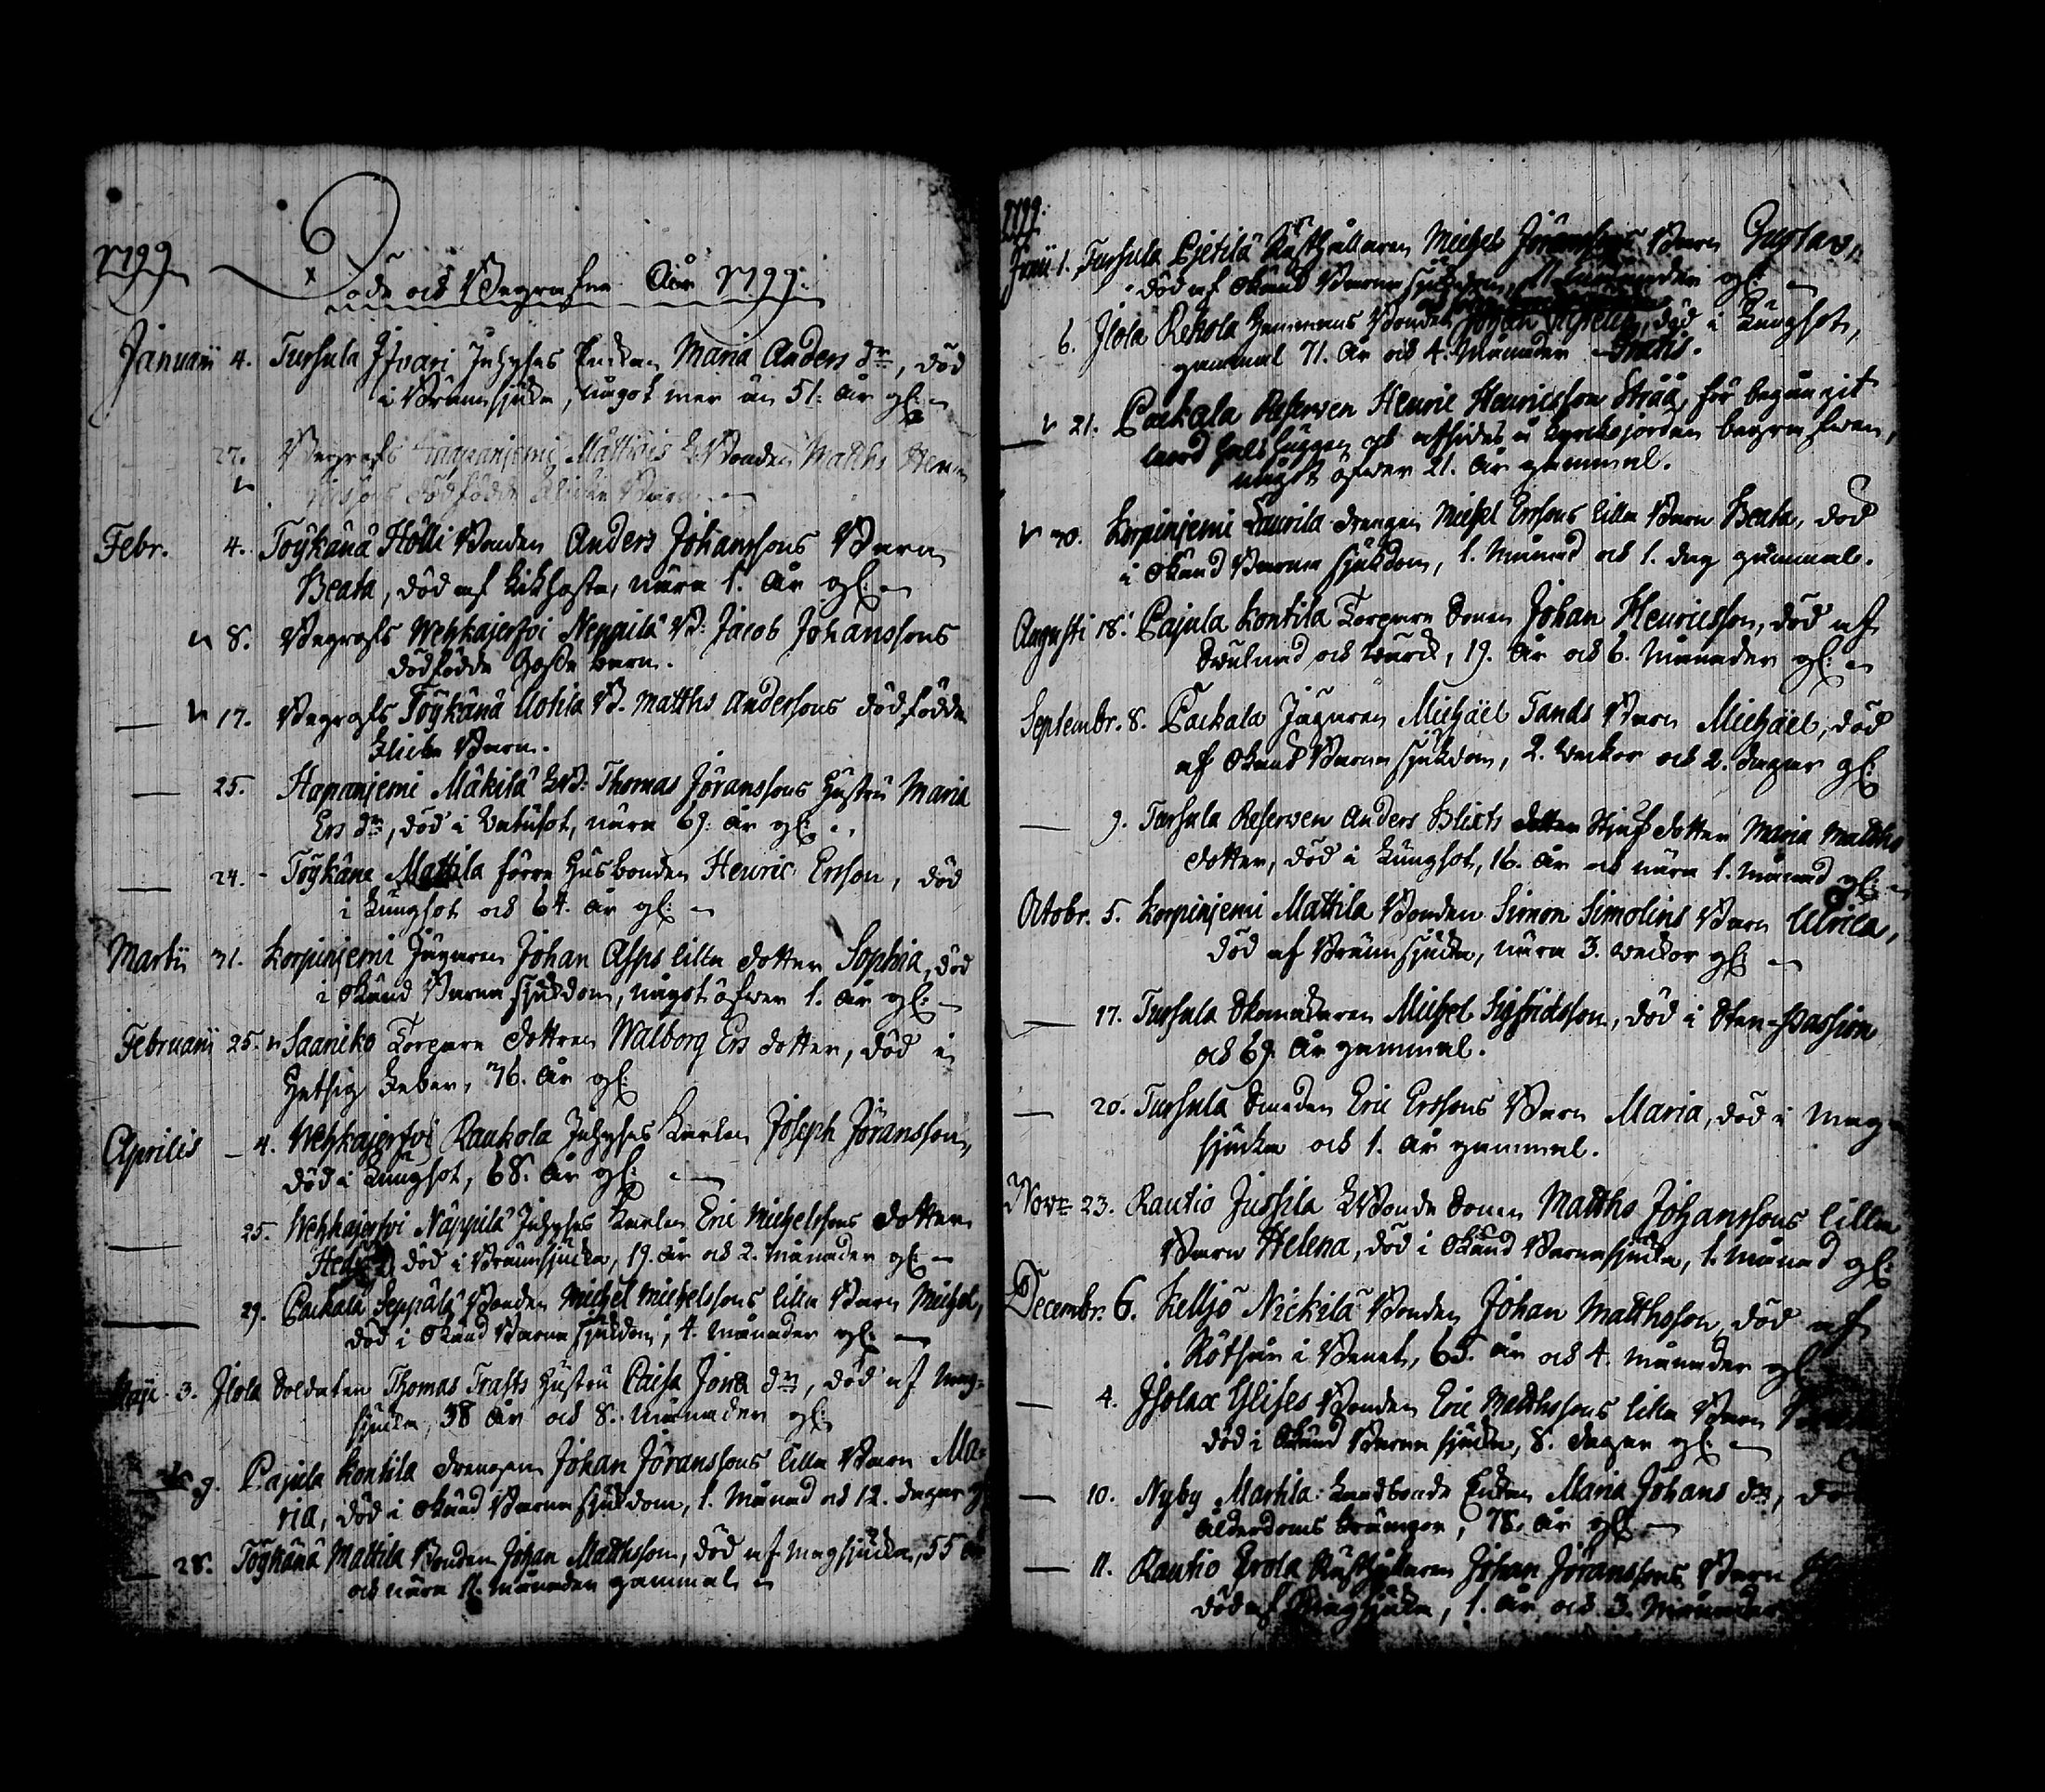 1799
Döde och Begrafne År 1799:
Januarii 4. Tursula Ifvari Inhyses Enckan Maria Anders dr, död
i Brännsjuka, något mer än 51. år gl:
27. Begrofs Haapanjemi Mattois LBonden Matths Hen-
ricssons dödfödde Flicke Barn.
Febr. 4. Töykänä Hölli Bonden Anders Johanssons Barn
Beata, död af Kikhosta, nära 1. år gl:
8. Begrofs Wehkajerfvi Neppilä B: Jacob Johanssons
dödfödde Gosse barn.
17. Begrofs Töykänä Uotila B. Matths Anderssons dödfödde
Flicke Barn.
25. Hapanjemi Mäkilä LB: Thomas Jöranssons Hustru Maria
Ers dr, död i Vatusot, nära 69. år gl:
24. Töykäne Mattila förre Husbonden Henric Ersson, död
i Lungsot och 64. år gl:
Martii 31. Korpinjemi Jägaren Johan Asps lilla dotter Sophia, död
i Okänd Barnasjukdom, något öfwer 1. år gl:
Februarii 25. Saaniko Torpare dottren Walborg Ers dotter, död i
Hetsig Feber, 36. år gl:
Aprilis 4. Wehkajerfvi Raukola Inhyses Karlen Joseph Jöransson,
död i Lungsot, 68. år gl:
25. Wehkajerfvi Näppilä Inhyses Karlen Eric Michelssons dotter
död i Brännsjuka, 19. år och 2. månader gl:
29. Packala Seppälä Bonden Michel Michelssons lilla Barn Michel,
död i Okänd Barnasjukdom, 4. månader gl:
Maji 3. Ilola Soldaten Thomas Trasts Hustru Caisa Jona dr, död af Mag-
sjuka, 38 år och 8. månader gl:
9. Pajula Kontila drengen Johan Jöranssons lilla Barn Ma-
ria, död i Okänd Barnasjukdom, 1. månad och 12. dagar
28. Töykänä Mattila Bonden Johan Matthsson, död af Magsjuka, 55 år
och nära 11. månader gammal
1799:
Junii 1. Tursula Pietilä Rusthållaren Michel Jöranssons Barn Gustav,
död af Okänd Barnasjukdom, månader gl:
6. Ilola Rekola Hemmans Bonden Johan död i Lungsot,
gammal 71. år och 4. månader Gratis.
21. Packala Reserven Henric Henricsson Stråå, för begångit
mord halshuggen och afsides å kyrckojorden begrafwen,
något öfwer 21. år gammal.
30. Korpinjemi Laurila drengen Michel Erssons lilla Barn Beata, död
i Okänd Barnasjukdom, 1. månad och 1. dag gammal.
Augusti 18. Pajula Kontila Torpare Sonen Johan Henricsson, död af
Swulnad och Wärck, 19. år och 6. månader gl:
Septembr. 8. Packala Jägaren Michäel Tands Barn Michäel, död
af Okänd Barnasjukdom, 2. veckor och 2. dagar gl:
9. Tursula Reserven Anders Blixts Stjuf dotter Maria Matths
dotter, död i Lungsot, 16. år och nära 1. månad gl:
Octobr. 5. Korpinjemi Mattila Bonden Simon Simolins Barn Ulrica,
död af Brännsjuka, nära 3. weckor gl:
17. Tursula Skomakaren Michel Sigfridsson, död i Sten-Passion
och 69. år gammal.
20. Tursula Smeden Eric Erssons Barn Maria, död i Mag-
sjuka och 1. år gammal.
Novr 23. Rautio Jussila LBonde Sonen Matths Johanssons lilla
Barn Helena, död i Okänd Barnasjuka, 1. månad gl:
Decembr. 6. Kelljo Nickilä Bonden Johan Matthsson, död af
Rötsår i Benet, 65. år och 4. månader gl:
4. Isolax Ylises Bonden Eric Matthssons lilla Barn
död i Okänd Barnasjuka, 8. dagar gl:
10. Nyby Martila: Landbonde Enckan Maria Johans dr,
ålderdoms krämpor, 78. år gl:
11. Rautio Erola Rusthållaren Johan Jöranssons Barn
död af Magsjuka, 1. år och 3. månader